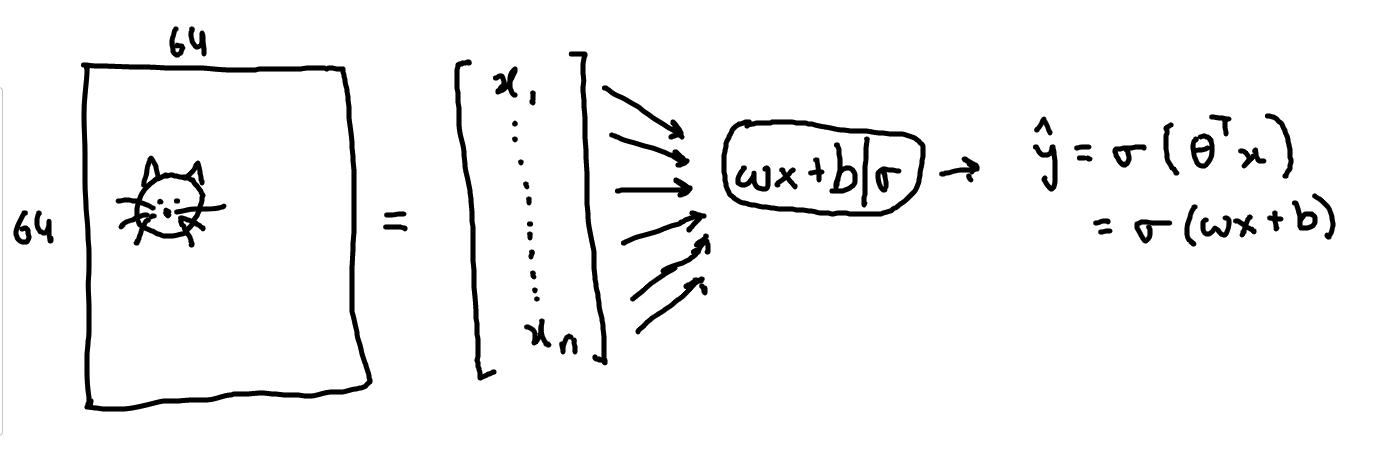 64
64
=
x₁
xₙ
wx+b|σ
ŷ = σ(θᵀx)
= σ(wx+b)